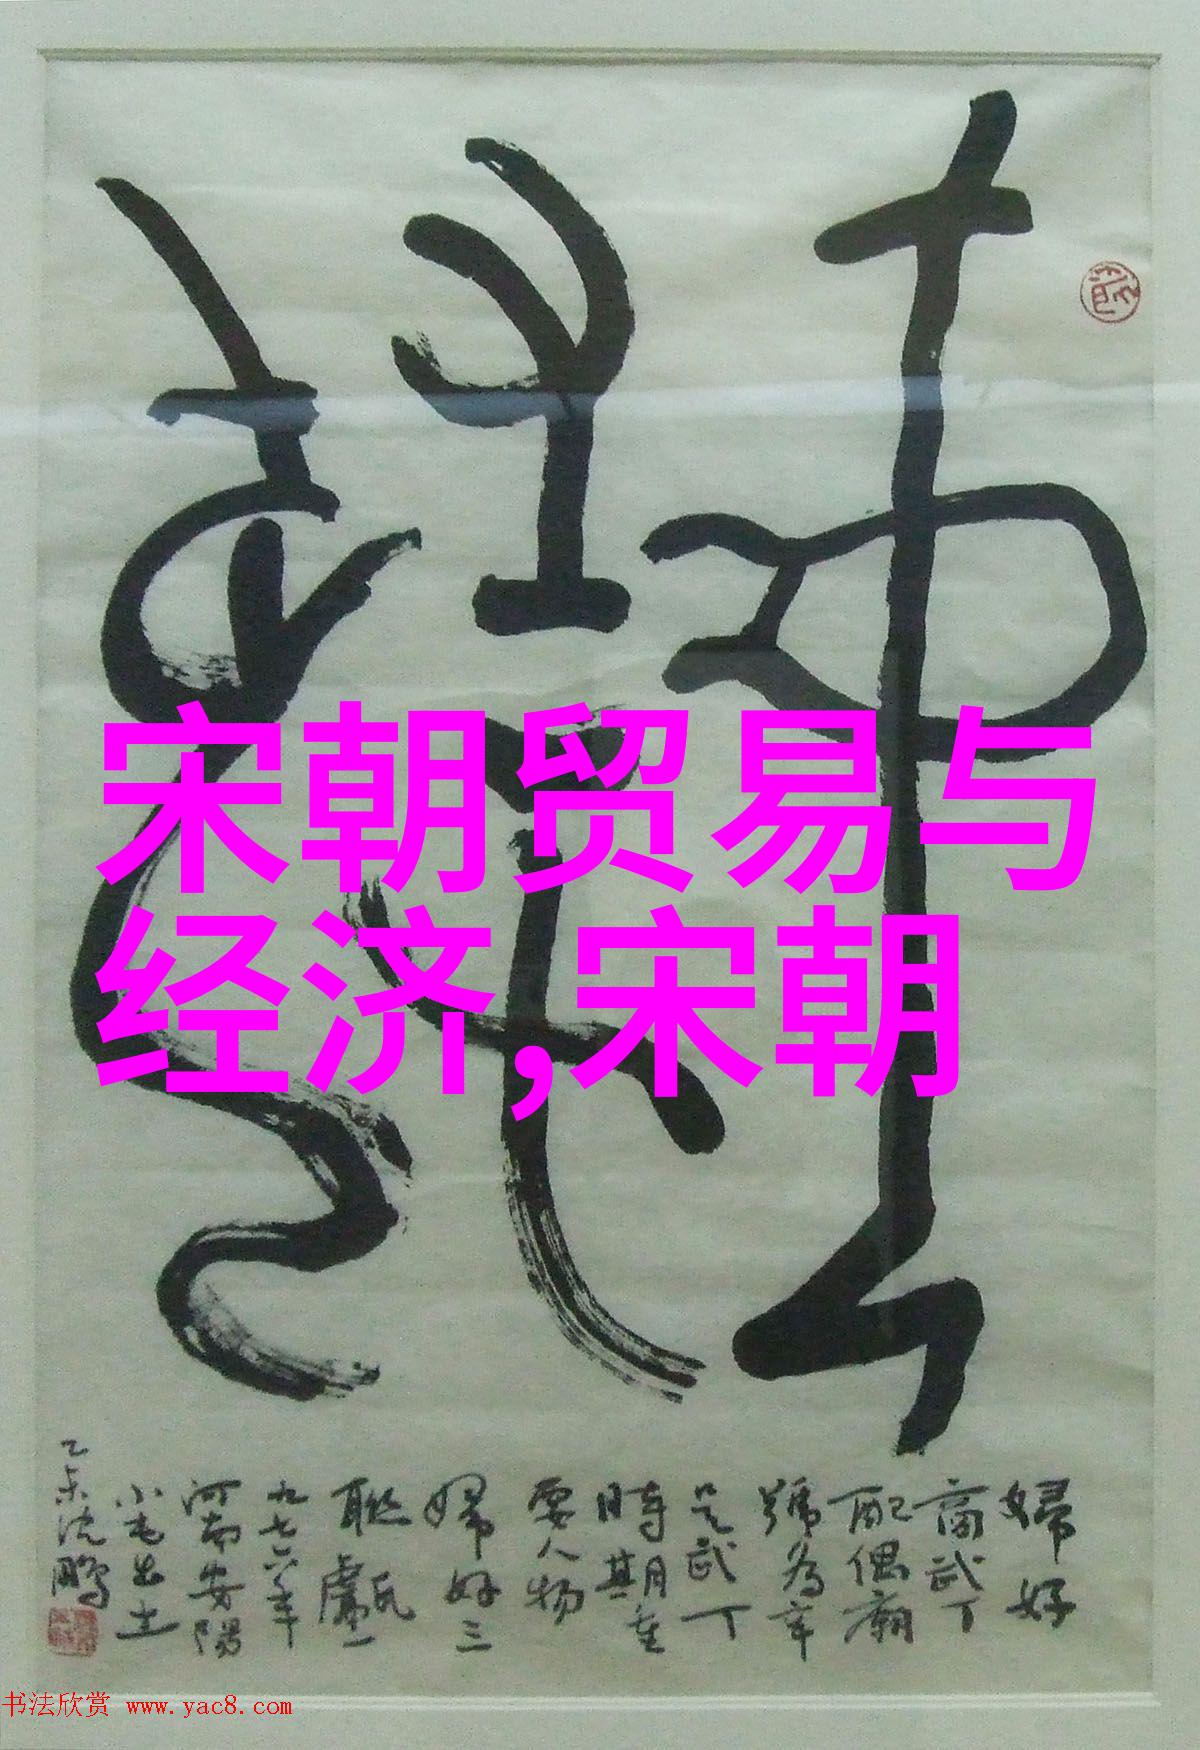 宋朝贸易与
经济,宋朝
婦好
商武丁
配偶廟
號为辛
是武丁
時期重
要人物
婦好三
聯甗一
九七六年
河南安陽
小屯出土
乙未沈鵬
书法欣赏 www.yac8.com